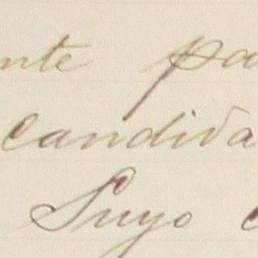 nte pa
candida
Suyo